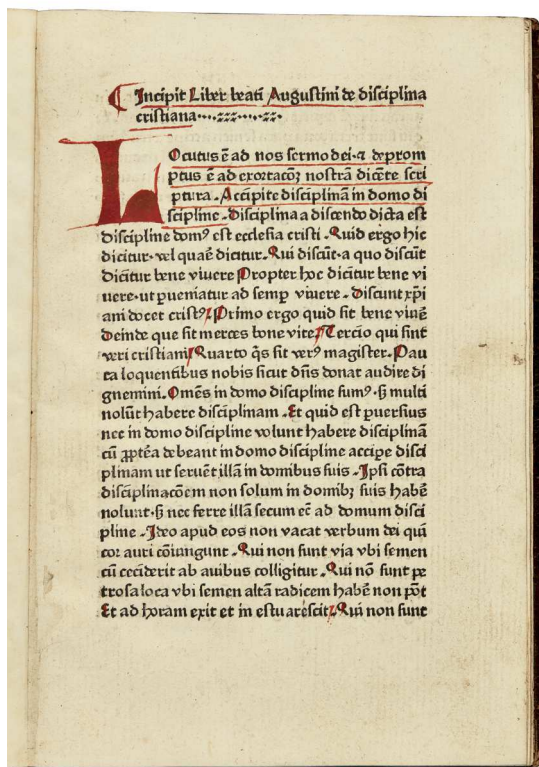 Incipit Liber beati Augustini de disciplina
cristiana
LOcutus ē ad nos sermo dei·⁊ deprom
ptus ē ad exortacōꝫ nostrā dicēte scri
ptura. Accipite disciplinā in domo di
scipline. Disciplina a discendo dicta est
discipline domꝰ est ecclesia cristi. Quid ergo hic
dicitur· vel quaē dicitur. Qui discūt· a quo discūt
dicitur bene viuere Propter hoc dicitur bene vi
uere· ut ꝑueniatur ad semꝑ viuere. Discunt xp̄i
ani docet cristꝰ Primo ergo quid sit bene viuē
Deinde que sit merces bone vite Tercio qui sint
veri cristiani Quarto q̄s sit verꝰ magister. Pau
ca loquentibus nobis sicut dn̄s donat audire di
gnemini. Omēs in domo discipline sumꝰ· sꝫ multi
nolūt habere disciplinam. Et quid est ꝑuersius
nec in domo discipline volunt habere disciplinā
cū ꝓptēa debeant in domo discipline accipe disci
plinam ut seruēt illā in domibus suis. Ipsi cōtra
disciplinacōem non solum in domibꝫ suis habē
nolunt· sꝫ nec ferre illam secum eē ad domum disci
pline. Ideo apud eos non vacat verbum dei quū
cor auri cōiungunt. Qui non sunt via vbi semen
cū ceciderit ab auibus colligitur. Qui nō sunt pe
trosa loca vbi semen altā radicem habē non pōt
Et ad horam exit et in estu arescit Qui non sunt